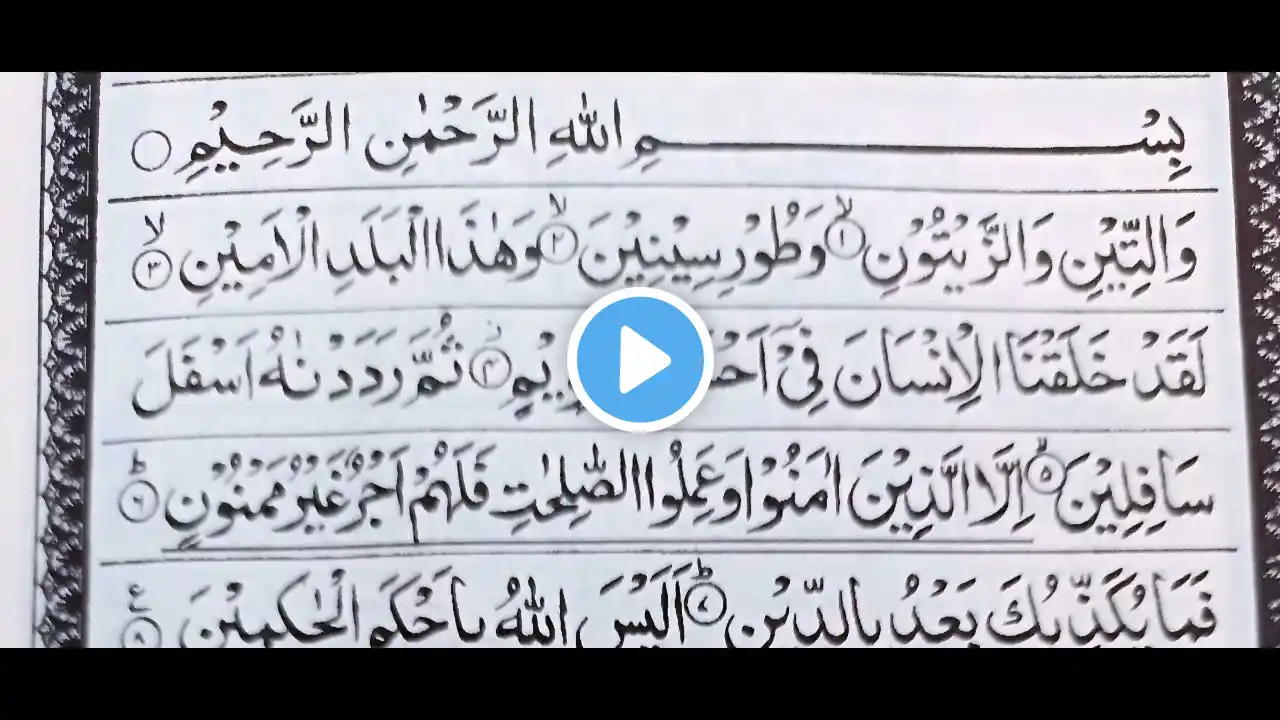 بِسْمِ اللّٰهِ الرَّحْمٰنِ الرَّحِيْمِ
وَالتِّيْنِ وَالزَّيْتُوْنِ ۙ﴿۱﴾ وَطُوْرِ سِيْنِيْنَ ۙ﴿۲﴾ وَهٰذَا الْبَلَدِ الْاَمِيْنِ ۙ﴿۳﴾
لَقَدْ خَلَقْنَا الْاِنْسَانَ فِيْۤ ﴿۴﴾ ثُمَّ رَدَدْنٰهُ اَسْفَلَ
سَافِلِيْنَ ۙ﴿۵﴾ اِلَّا الَّذِيْنَ اٰمَنُوْا وَعَمِلُوا الصّٰلِحٰتِ فَلَهُمْ اَجْرٌ غَيْرُ مَمْنُوْنٍ ؕ﴿۶﴾
فَمَا يُكَذِّبُكَ بَعْدُ بِالدِّيْنِ ؕ﴿۷﴾ اَلَيْسَ اللّٰهُ بِاَحْكَمِ الْحٰكِمِيْنَ ﴿۸﴾